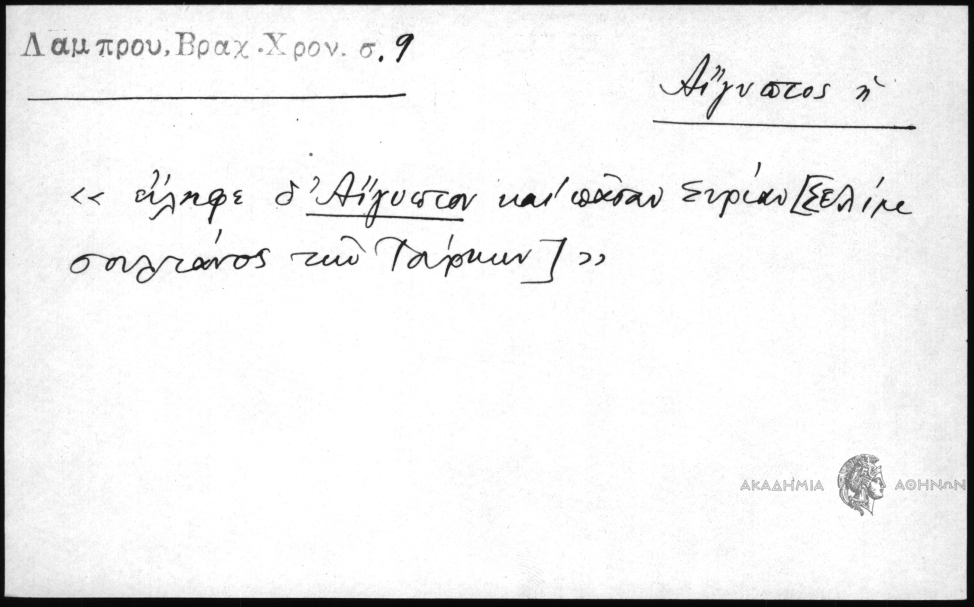 Λαμπρου, Βραχ. Χρον. σ. 9
Αἴγυπτος ἡ
« εἴληφε δ' Αἴγυπτον καὶ πᾶσαν Συρίαν [Σελὶμ
σουλτάνος τῶν Τούρκων] »
ΑΚΑΔΗΜΙΑ ΑΘΗΝΩΝ